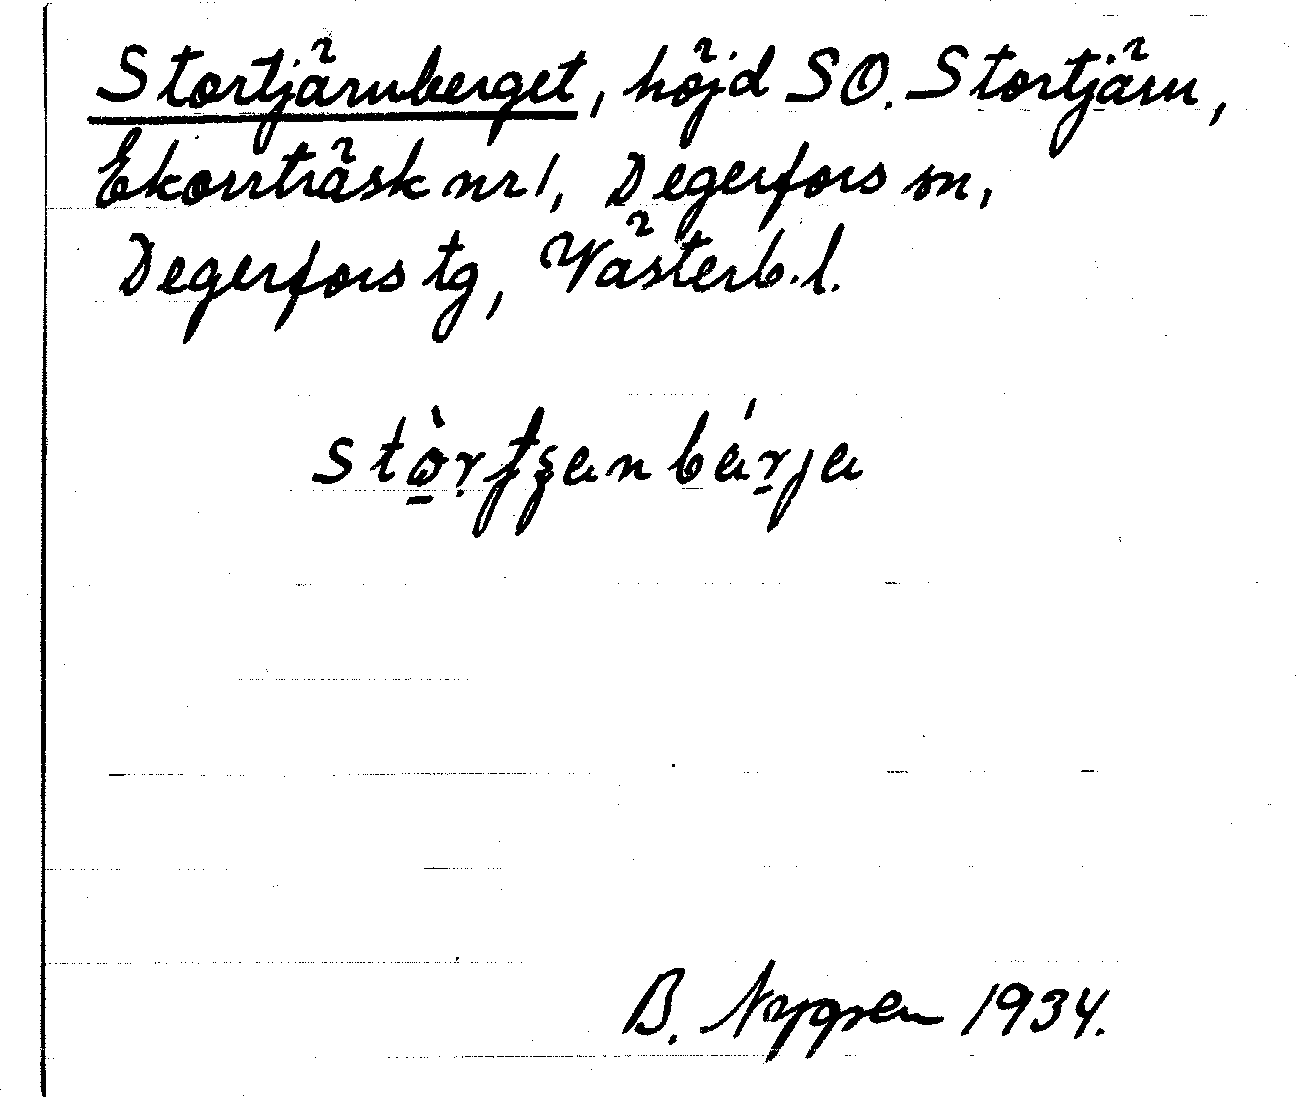 Stortjärnberget, höjd SO. Stortjärn,
Ekorrträsk nr 1, Degerfors sn,
Degerfors tg, Västerb. l.
B. Nygren 1934.